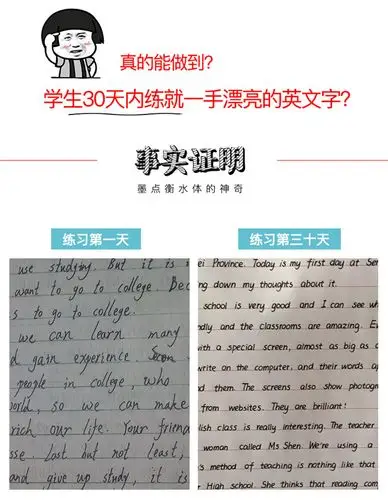 真的能做到?
学生30天内练就一手漂亮的英文字?
事实证明
墨点衡水体的神奇
练习第一天
use studying. But it is i
want to go to college. Bec
s to go to college.
we can learn many
d gain experience
people in college, who
world, so we can make
rich our life. Your friend
sse. Last but not least,
and give up study, it is
练习第三十天
ei Province. Today is my first day at Sen
ng down my thoughts about it.
school is very good and I can see wh
ndly and the classrooms are amazing. Ev
with a special screen, almost as big as a
write on the computer, and their words ap
d them. The screens also show photogr
from websites. They are brilliant!
lish class is really interesting. The teacher
woman called Ms Shen. We're using a
's method of teaching is nothing like that
r High school. She thinks that reading com